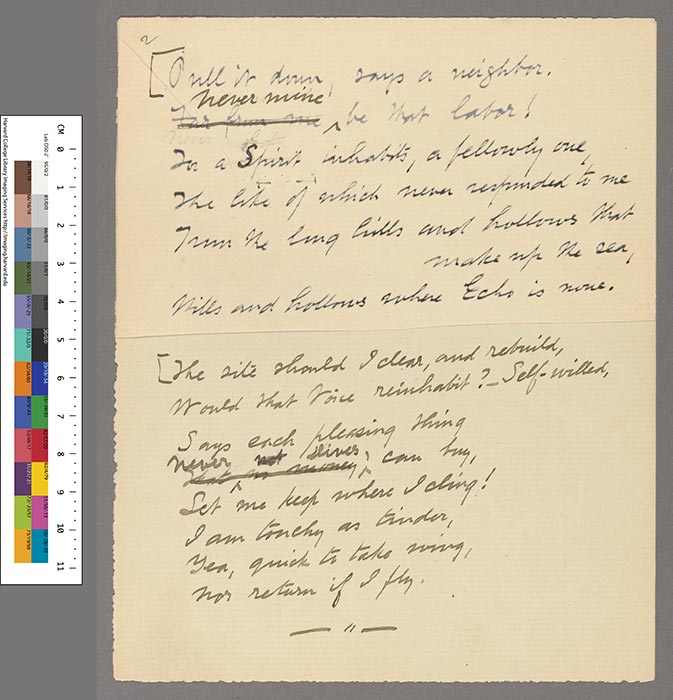 2
Pull it down, says a neighbor.
Never mine
Far from me be that labor!
For a Spirit inhabits, a fellowly one,
The like of which never responded to me
From the long hills and hollows that
make up the sea,
Hills and hollows where Echo is none.
The site should I clear, and rebuild,
Would that Voice reinhabit? — Self-willed,
Says each pleasing thing
Never not Dives
that no money can buy,
Let me keep where I cling!
I am touchy as tinder,
Yea, quick to take wing,
Nor return if I fly.
— " —
CM 0 1 2 3 4 5 6 7 8 9 10 11
Harvard College Library Imaging Services http://imaging.harvard.edu